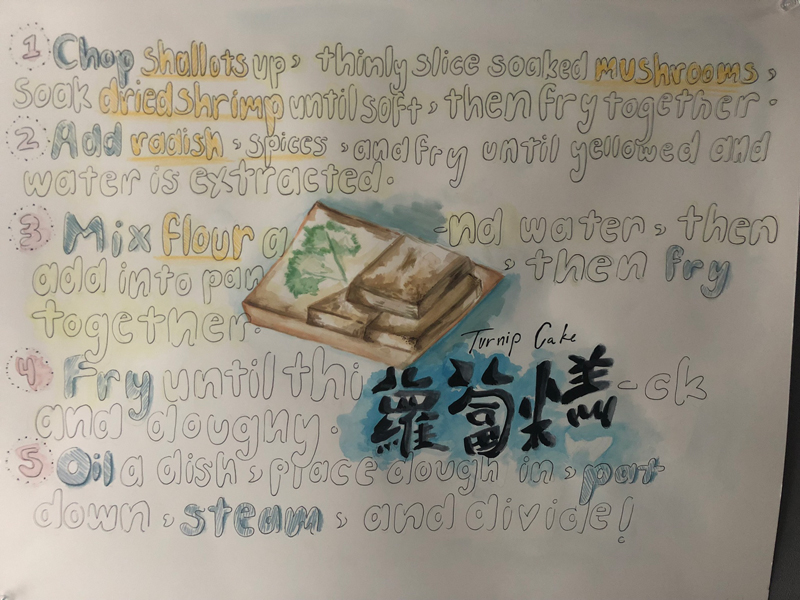 1 Chop shallots up, thinly slice soaked mushrooms,
soak dried shrimp until soft, then fry together.
2 Add radish, spices, and fry until yellowed and
water is extracted.
3 Mix flour a -nd water, then
add into pan, then fry
together.
Turnip Cake
蘿蔔糕
4 Fry until thi -ck
and doughy.
5 Oil a dish, place dough in, pat
down, steam, and divide!